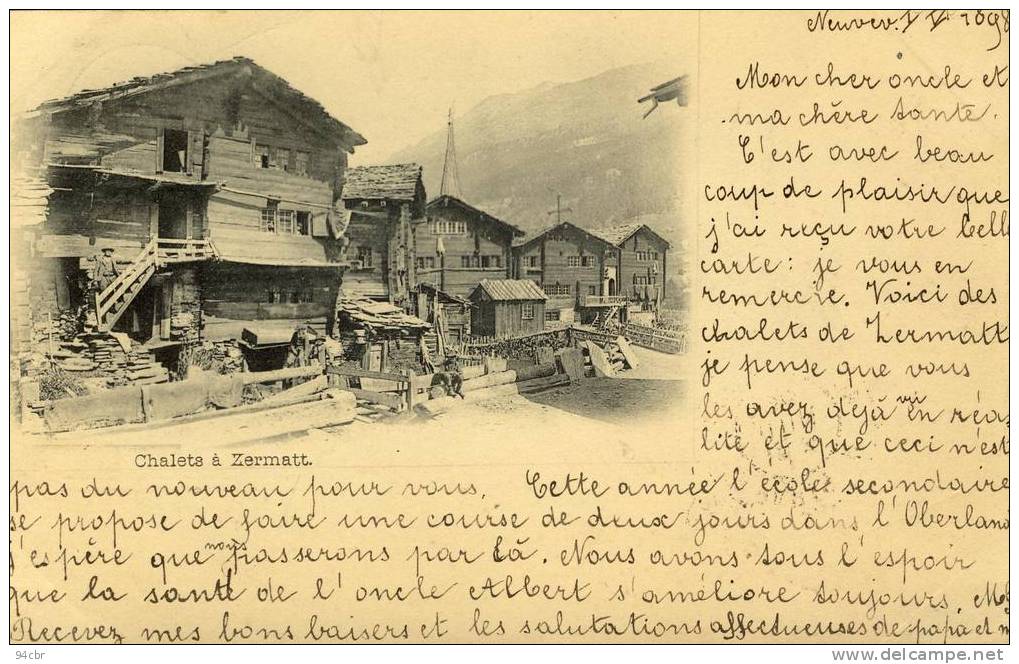 Neuvev. 1 V 1898
Mon cher oncle et
ma chère tante.
C'est avec beau
coup de plaisir que
j'ai reçu votre bell
carte: je vous en
remercie. Voici des
chalets de Zermatt
je pense que vous
les avez déjà vu en réa-
lité et que ceci n'est
Chalets à Zermatt.
pas du nouveau pour vous. Cette année l'école secondaire
se propose de faire une course de deux jours dans l'Oberland
j'espère que nous passerons par là. Nous avons tous l'espoir
que la santé de l'oncle Albert s'améliore toujours.
Recevez mes bons baisers et les salutations affectueuses de papa et m
94cir
http://www.delcampe.net